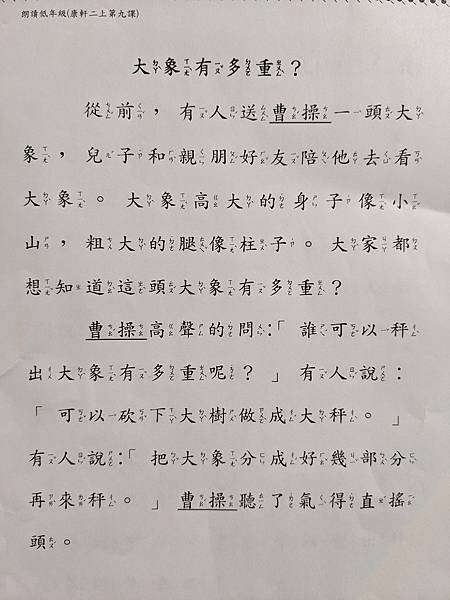 朗讀低年級(康軒二上第九課)
大象有多重？
從前，有人送曹操一頭大
象，兒子和親朋好友陪他去看
大象。大象高大的身子像小
山，粗大的腿像柱子。大家都
想知道這頭大象有多重？
曹操高聲的問：「誰可以秤
出大象有多重呢？」有人說：
「可以砍下大樹做成大秤。」
有人說：「把大象分成好幾部分
再來秤。」曹操聽了氣得直搖
頭。